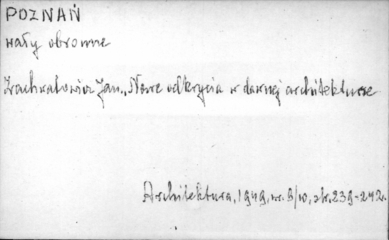 POZNAŃ
wały obronne
Zachwatowicz Jan. „Nowe odkrycia w dawnej architekturze
Architektura, 1949, nr. 9/10, str. 239-242.